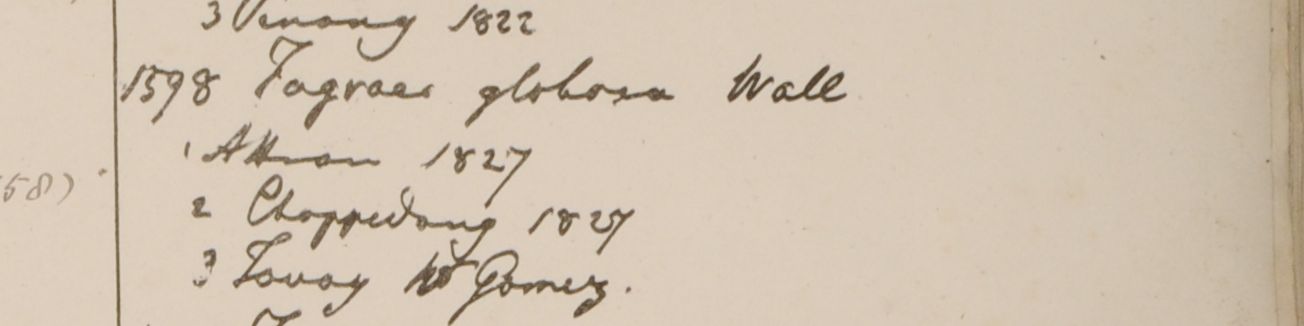 3 Penang 1822
1598 Fagraea globosa Wall
1 Attran 1827
58)
2 Chappedong 1827
3 Tavoy W Gomez.